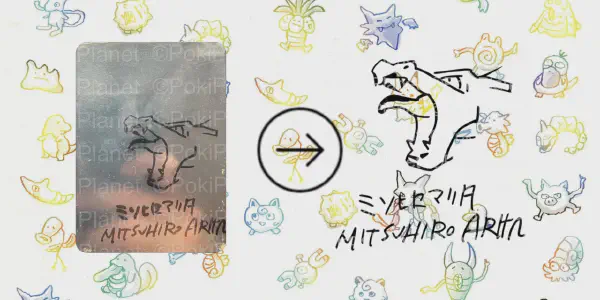 Planet ©PokiP
Planet ©PokiP
Planet
Planet
Planet © PokiP
ミツヒロ アリタ
MITSUHIRO ARITA
ミツヒロ アリタ
MITSUHIRO ARITA